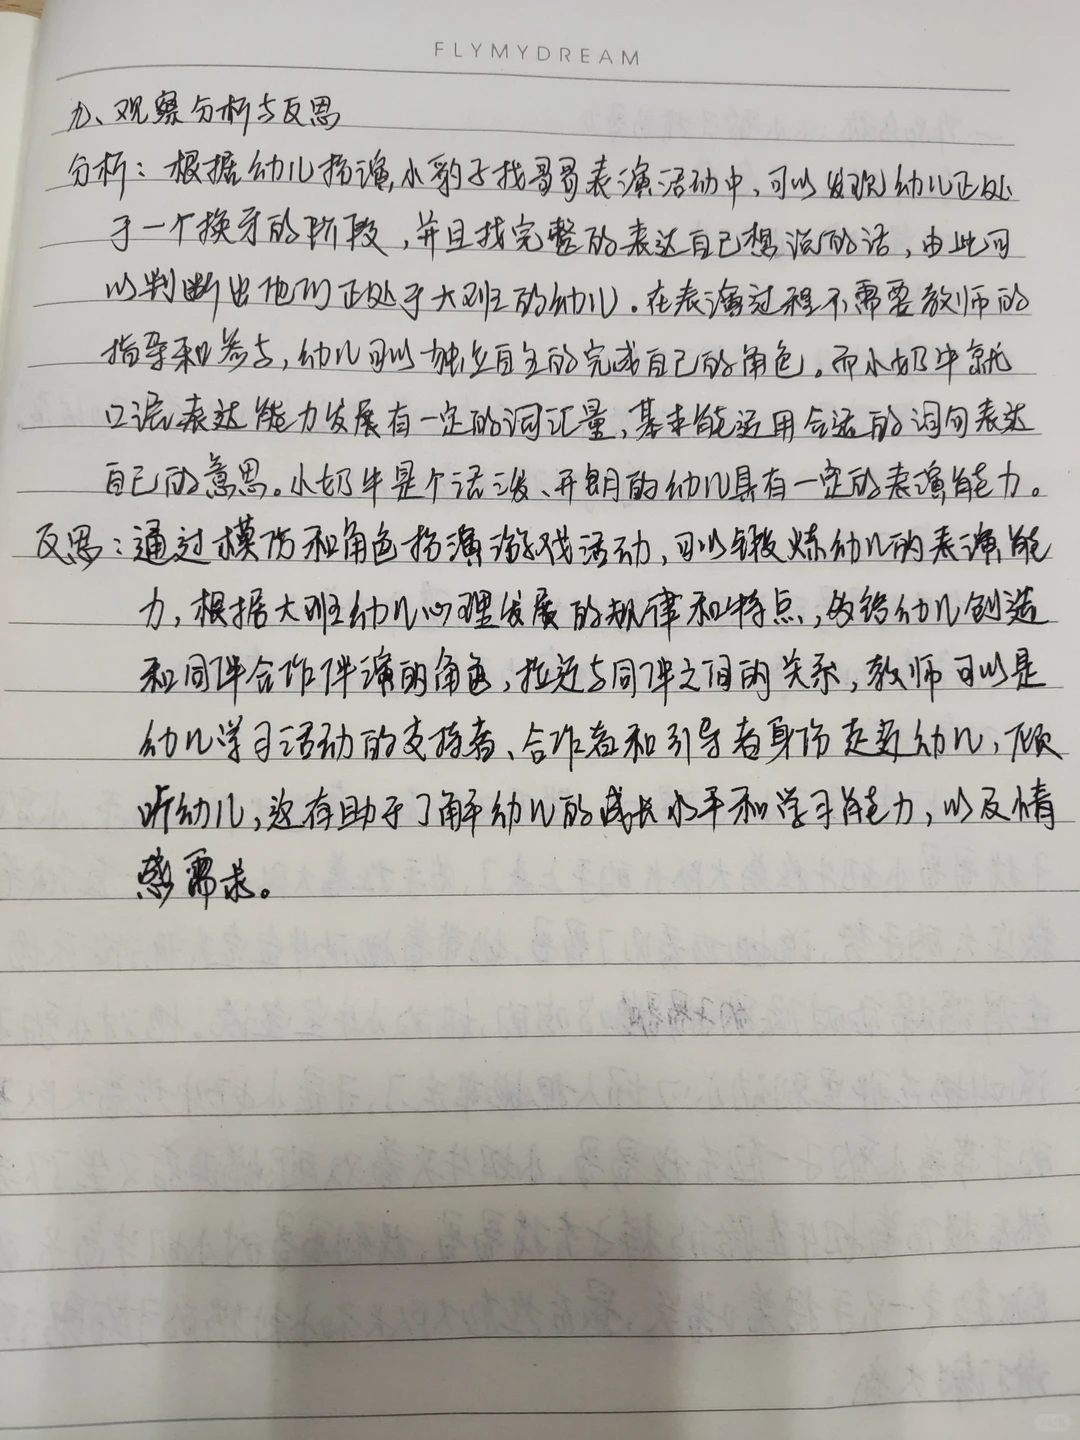 FLYMYDREAM
九、观察分析与反思
分析：根据幼儿扮演小豹子找哥哥表演活动中，可以发现幼儿正处
于一个换牙的阶段，并且找完整的表达自己想法的话，由此可
以判断出他们正处于大班的幼儿。在表演过程不需要教师的
指导和参与，幼儿可以独立自主的完成自己的角色。而小奶牛就
口语表达能力发展有一定的词汇量，基本能运用合适的词句表达
自己的意思。小奶牛是个活泼、开朗的幼儿具有一定的表演能力。
反思：通过模仿和角色扮演游戏活动，可以锻炼幼儿的表演能
力，根据大班幼儿心理发展的规律和特点，多给幼儿创造
和同伴合作伴演的角色，拉近与同伴之间的关系，教师可以是
幼儿学习活动的支持者、合作者和引导者身份走近幼儿，倾
听幼儿，这有助于了解幼儿的成长水平和学习能力，以及情
感需求。